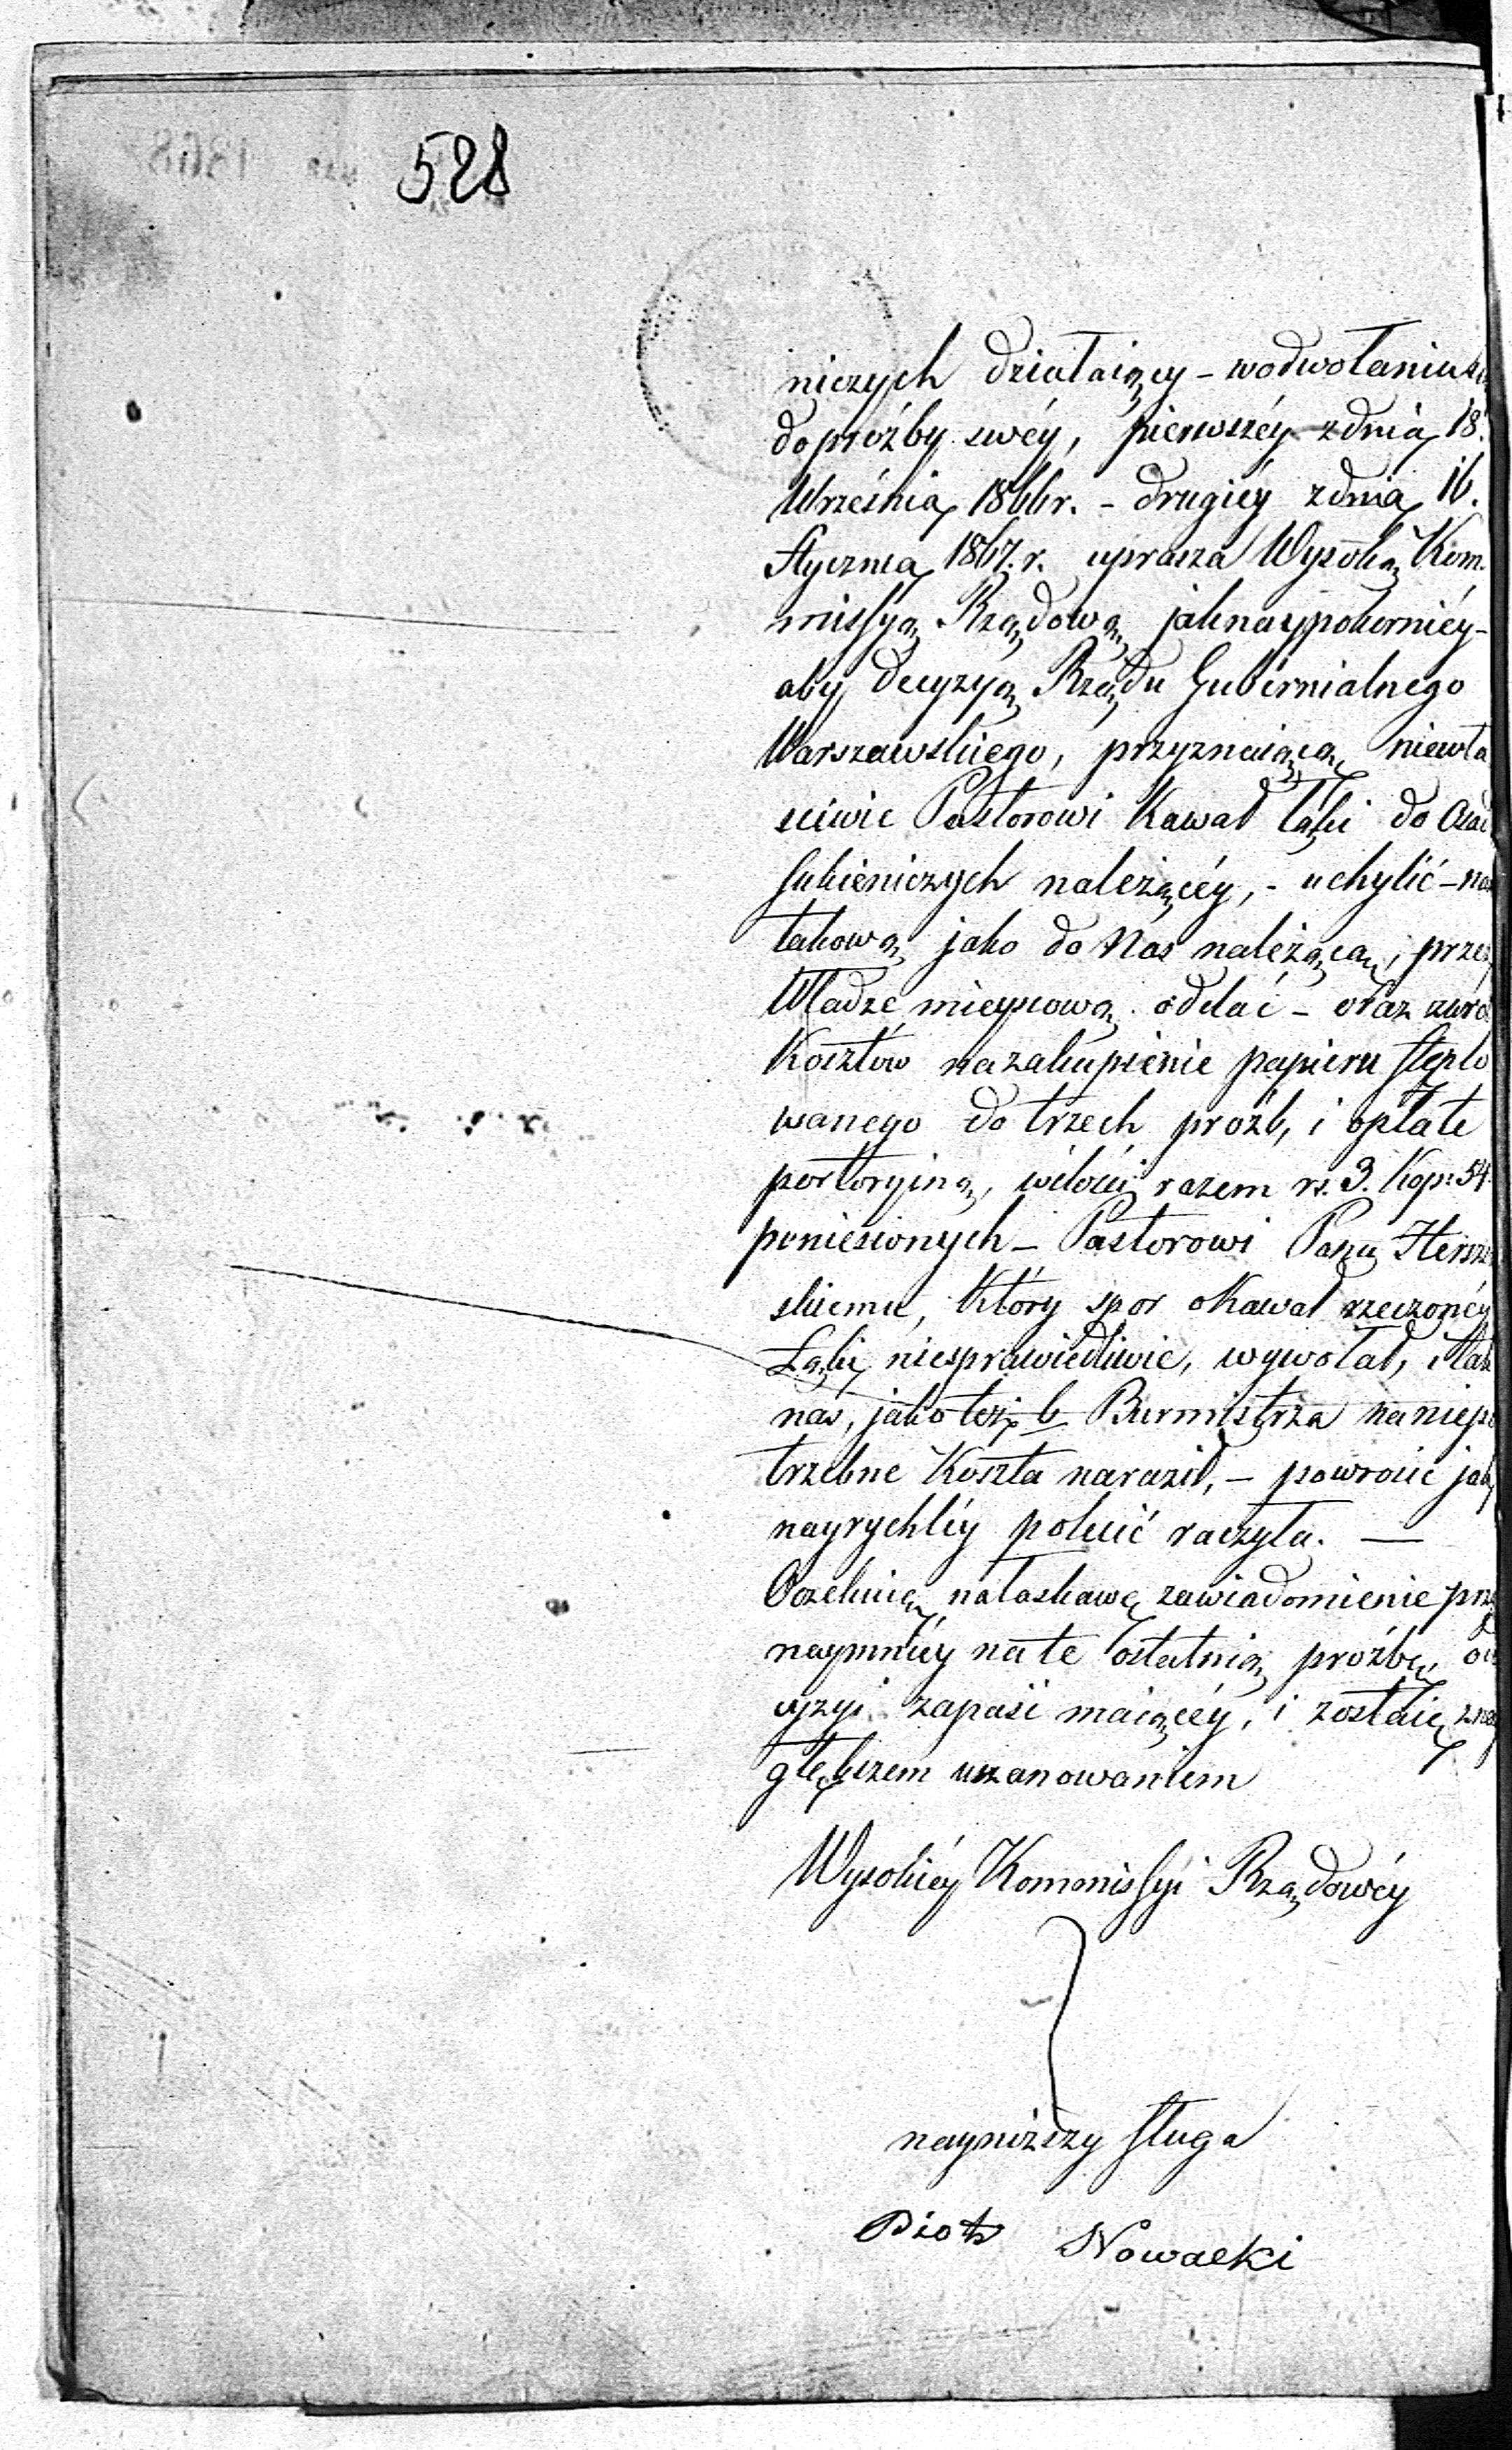 528
niczych działaiący - wodwołaniu
do prożby swéy, pierwszéy zdnia 18.
Września 1866r. - drugiéy zdnia 16.
Stycznia 1867.r. uprasza Wysoką Kom-
missyą Rządową, jaknaypokorniéy -
aby decyzyą Rządu Gubernialnego
Warszawskiego, przyznaiącą niewła
sciwie Pastorowi Kawał Łąki do
Sukieniczych należącéy, - uchylić -
takową, jako do Nas należącą, przez
Władzę mieyscową oddać - oraz
Kosztów na zakupienie papieru stęplo
wanego do trzech prożb, i opłate
portoryiną, wilości razem rs. 3. Kop: 54.
poniesionych - Pastorowi Panu
skiemu, który spor o Kawał rzeczonéy
Łąki niesprawiedliwie, wywołał, i tak
nas, jako też b. Burmistrza na niepo
trzebne Koszta naraził, - powrócić jak
nayrychléy polecić raczyła. —
Oczekuię na łaskawe zawiadomienie
naymniéy na te ostatnią prożbę,
cyzyi zapaśi maiącéy, i zostaię z nay
głębszem uszanowaniem
Wysokiéy Kommissyi Rządowéy
nayniższy sługa
Piotr Nowacki